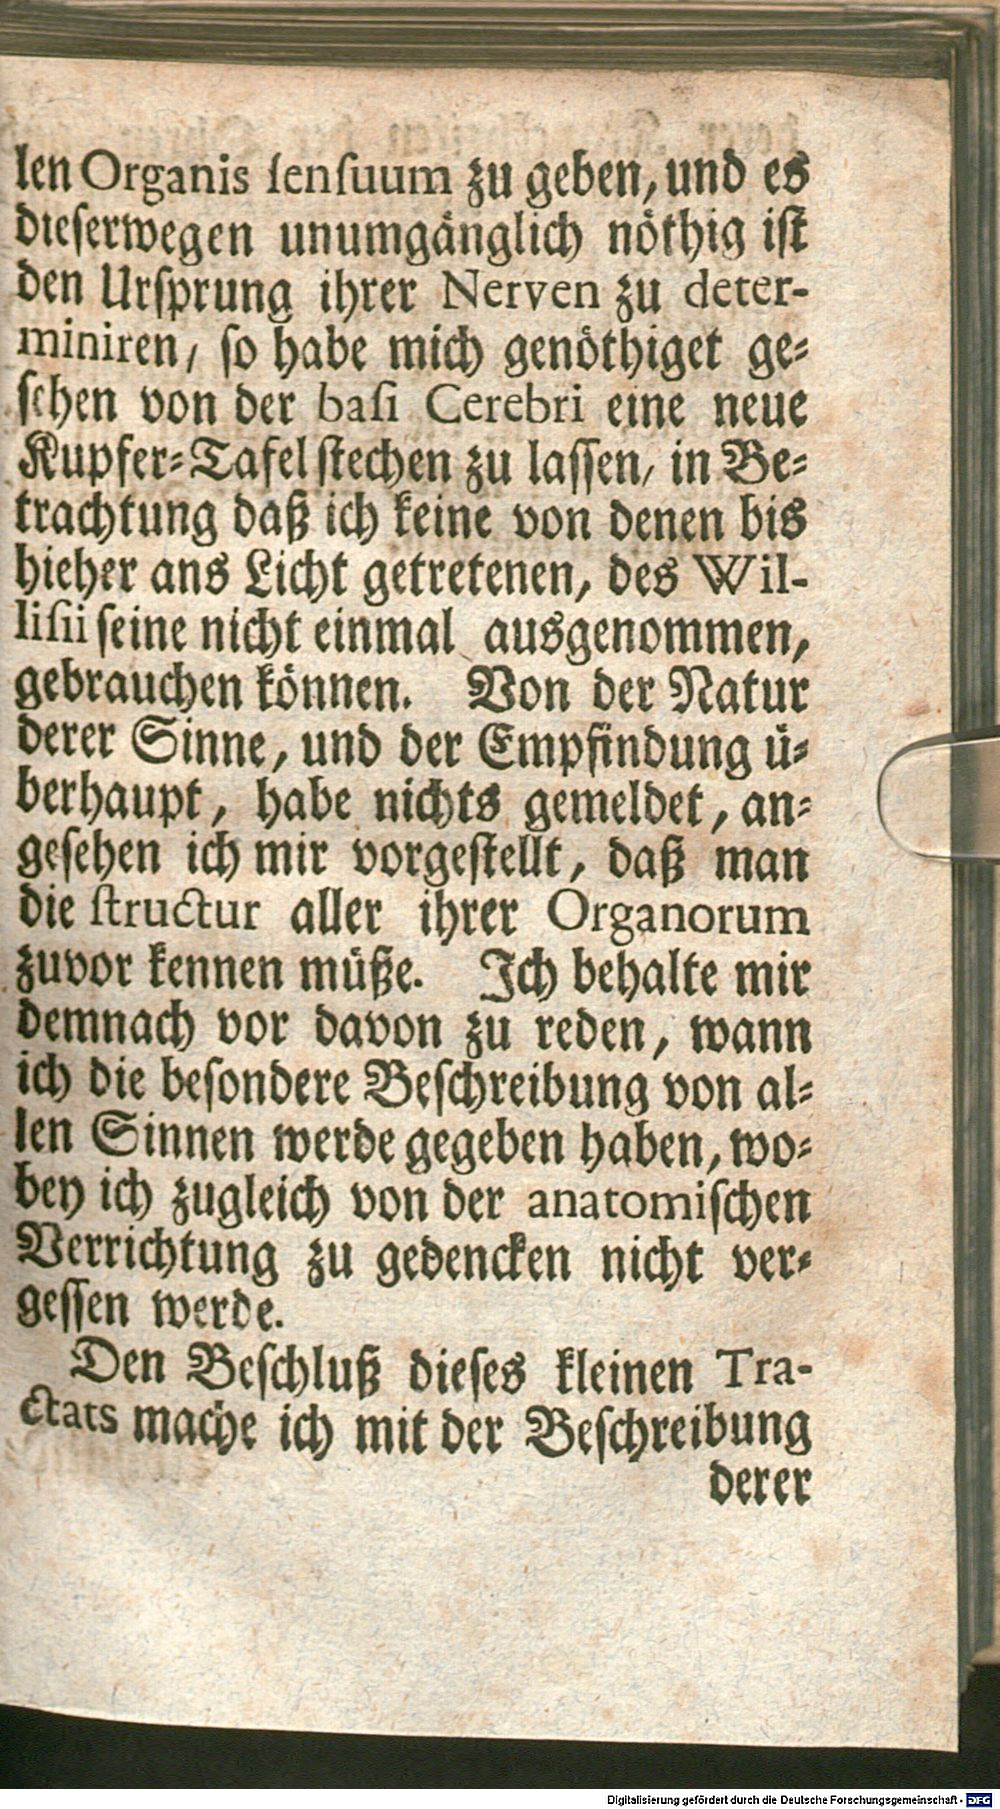 len Organis ſenſuum zu geben, und es
dieſerwegen unumgänglich nöthig iſt
den Urſprung ihrer Nerven zu deter-
miniren, ſo habe mich genöthiget ge-
ſehen von der baſi Cerebri eine neue
Kupfer-Tafel ſtechen zu laſſen, in Be-
trachtung daß ich keine von denen bis
hieher ans Licht getretenen, des Wil-
liſii ſeine nicht einmal ausgenommen,
gebrauchen können. Von der Natur
derer Sinne, und der Empfindung ü-
berhaupt, habe nichts gemeldet, an-
geſehen ich mir vorgeſtellt, daß man
die ſtructur aller ihrer Organorum
zuvor kennen müße. Ich behalte mir
demnach vor davon zu reden, wann
ich die beſondere Beſchreibung von al-
len Sinnen werde gegeben haben, wo-
bey ich zugleich von der anatomiſchen
Verrichtung zu gedencken nicht ver-
geſſen werde.
Den Beſchluß dieſes kleinen Tra-
ctats mache ich mit der Beſchreibung
derer
Digitalisierung gefördert durch die Deutsche Forschungsgemeinschaft - DFG